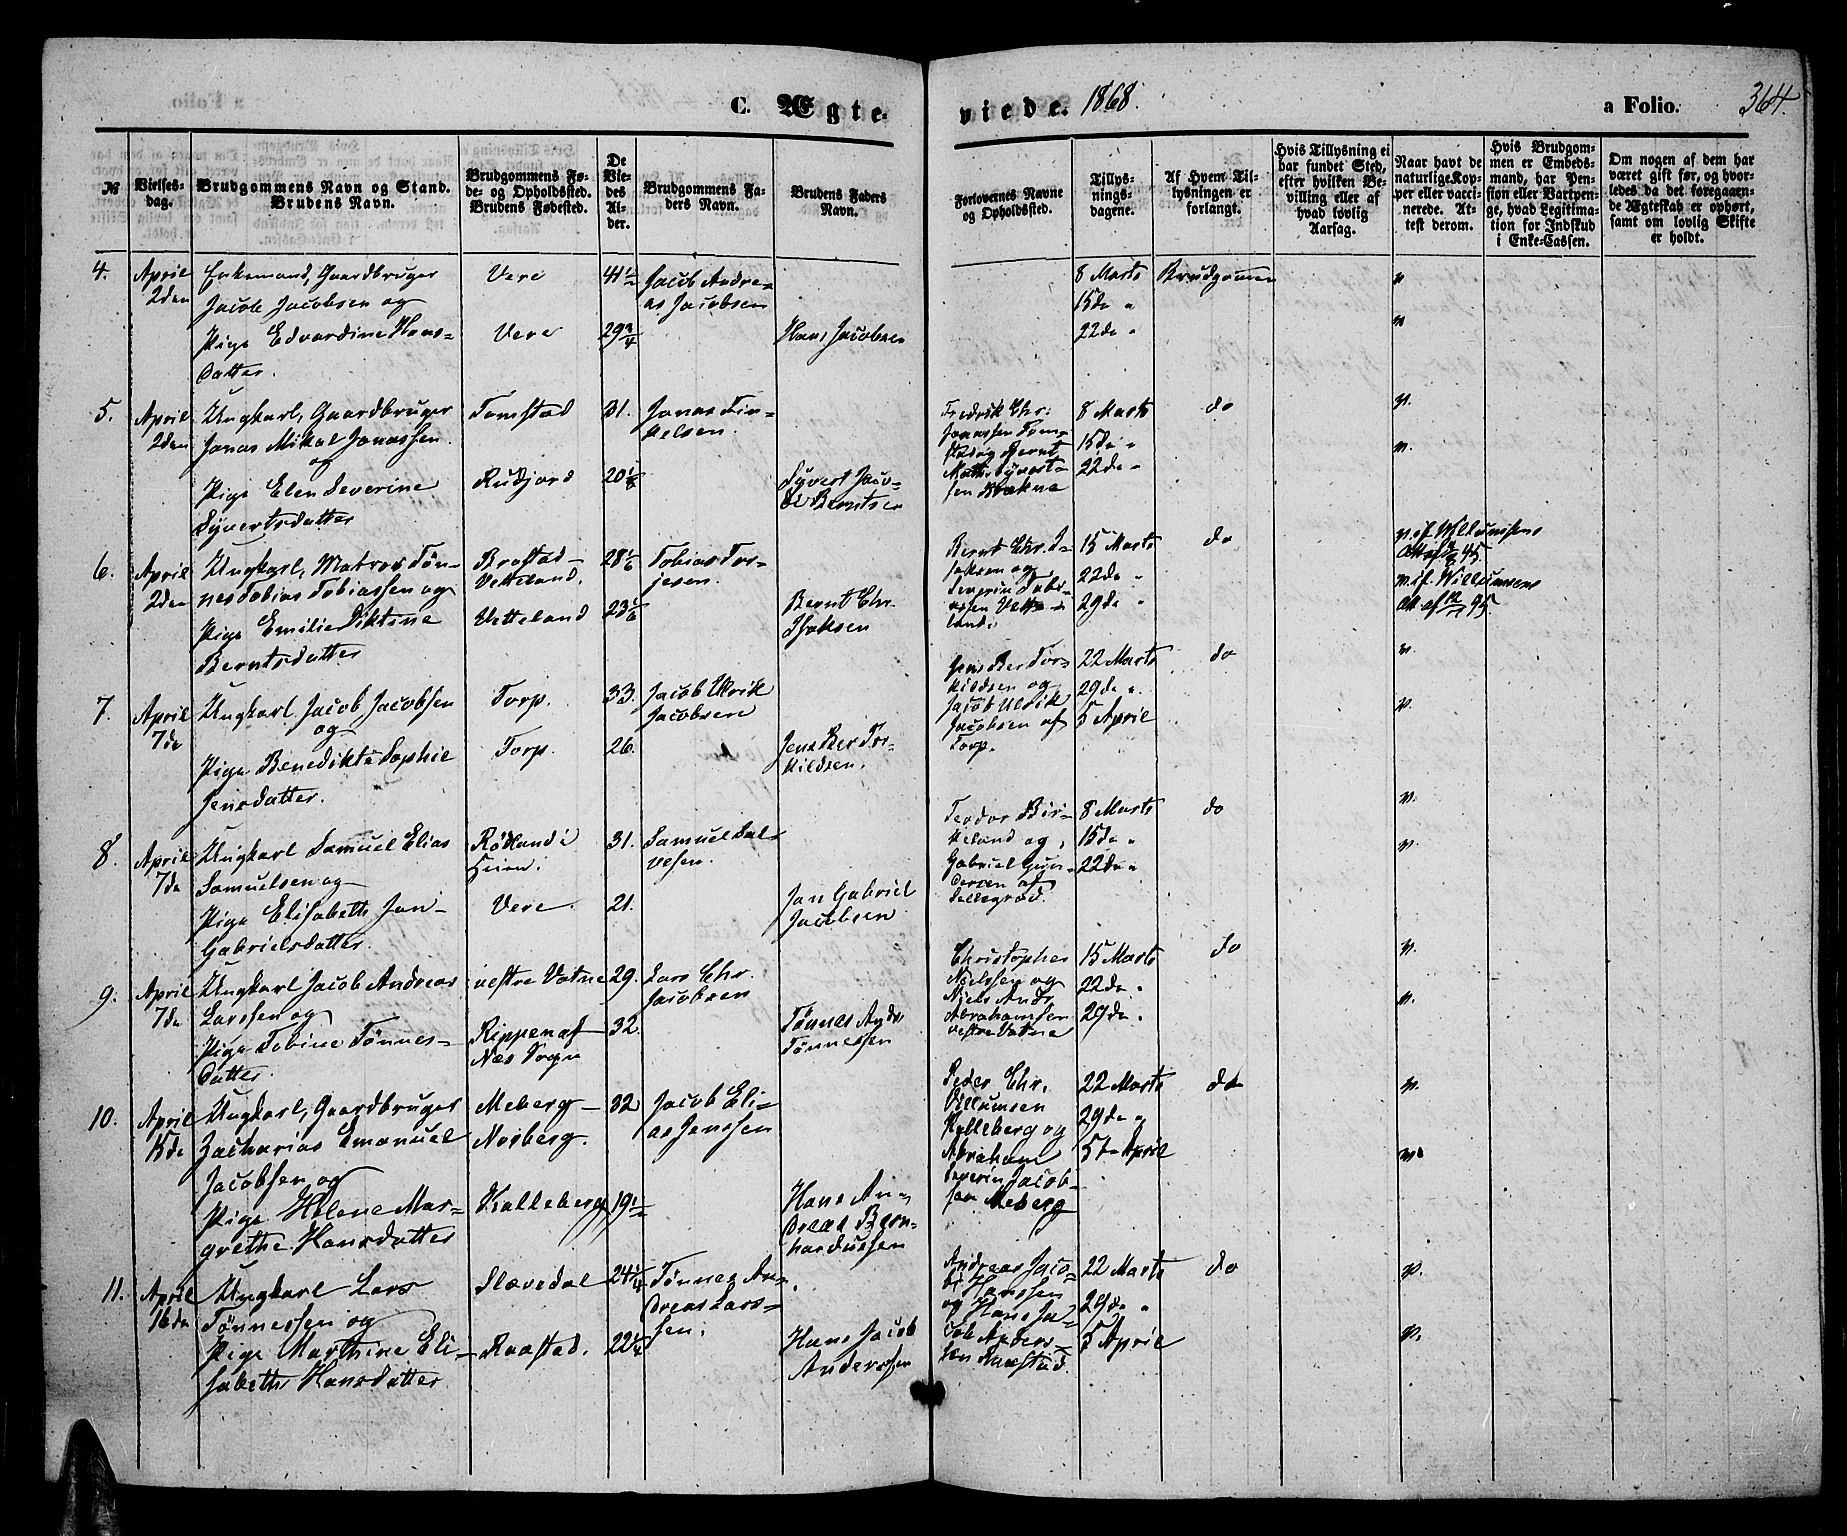 C. Ægte-
viede. 1868.
a Folio. 364.
№
Vielses-
dag.
Brudgommens Navn og Stand.
Brudens Navn.
Brudgommens Fø-
de- og Opholdssted.
Brudens Fødested.
De
Vie-
des
Al-
der.
Brudgommens Fa-
ders Navn.
Brudens Faders
Navn.
Forlovernes Navne
og Opholdssted.
Tillys-
nings-
dagene.
Af Hvem Til-
lysningen er
forlangt.
Hvis Tillysning ei
har fundet Sted,
efter hvilken Be-
villing eller af
hvad lovlig
Aarsag.
Naar havt de
naturlige Kop-
per eller vacci-
nerede. At-
test derom.
Hvis Brudgom-
men er Embeds-
mand, har Pen-
sion eller Vartpen-
ge, hvad Legitima-
tion for Indskud
i Enke-Cassen.
Om nogen af dem har
været gift før, og hvor-
ledes da det foregaaen-
de Ægteskab er ophørt,
samt om lovlig Skifte
er holdt.
4. April
2den
Enkemand, Gaardbruger
Jacob Jacobsen og
Pige Edvardine Hans-
datter.
Vere
Vere
41 1/2
29 3/4
Jacob Andre-
as Jacobsen
Hans Jacobsen
8 Marts
15de "
22de "
Brudgommen
v
v
5. April
2den
Ungkarl, Gaardbruger
Jonas Mikal Jonassen
og
Pige Elen Severine
Syvertsdatter
Tomstad
Rudjord
31.
20 1/8
Jonas Tin-
kelsen.
Syvert Jac-
ob Berntsen
Fredrik Chr:
Jonassen Tom-
stad og Bernt
Math. Syvert-
sen
8 Marts
15de "
22de "
do
v.
v.
6. April
2den
Ungkarl, Matros Tøn-
nes Tobias Tobiassen og
Pige Emilie Diktine
Berntsdatter
Brastad-
Vetteland.
Vetteland
28 1/6
23 1/6
Tobias Tor-
jesen.
Bernt Chr.
Isaksen
Bernt Chr. I-
saksen og
Severin Tobi-
assen Vette-
land.
15 Marts
22de "
29de "
do
v. if. Willumsens
Att af 45.
v. if. Willumsens
Att af 45.
7. April
7de
Ungkarl Jacob Jacobsen
og
Pige Benedikte Sophie
Jensdatter.
Torp.
Torp.
33.
26.
Jacob Ulrik
Jacobsen
Jens Ber Tor-
kildsen.
Jens Ber Tor-
kildsen og
Jacob Ulrik
Jacobsen af
Torp.
22 Marts
29de "
5 April
do
v.
v.
8. April
7de
Ungkarl Samuel Elias
Samuelsen og
Pige Elisabeth Jan-
Gabrielsdatter.
Rødland i
Vere.
31.
21.
Samuel Sal-
vesen.
Jan Gabriel
Jacobsen
Teodor Bir-
keland og
Gabriel Gun-
dersen af
8 Marts
15de "
22de "
do
v.
v.
9. April
7de
Ungkarl Jacob Andreas
Larssen og
Pige Tobine Tønnes-
datter.
vestre Vatne
Rippen af
Næs Sogn
29.
32.
Lars Chr.
Jacobsen
Tønnes Andr
Tønnessen
Christopher
Nielssen og
Niels Andr
Abrahamsen
vestre Vatne
15 Marts
22de "
29de "
do
v.
v.
10. April
15de
Ungkarl, Gaardbruger
Zacharias Emanuel
Jacobsen og
Pige Helene Mar-
grethe Hansdatter
Meberg-
Norberg.
Kalleberg
32
19 1/2
Jacob Eli-
as Jenssen
Hans An-
dreas Bern-
hardussen
Peder Chr.
Villumsen
Kalleberg og
Abraham
Severin Jacob-
sen Meberg
22 Marts
29de "
5te April
do
v.
v.
11. April
16de
Ungkarl Lars
Tønnessen og
Pige Marthine Eli-
sabeth Hansdatter
Slævedal
Raastad.
24 1/4
22 1/4
Tønnes An-
dreas Lars-
sen.
Hans Jacob
Anderssen
Andreas Jaco-
b Hanssen
og Hans Ja-
cob Anders-
sen Raastad
22 Marts
29de "
5 April
do
v.
v.